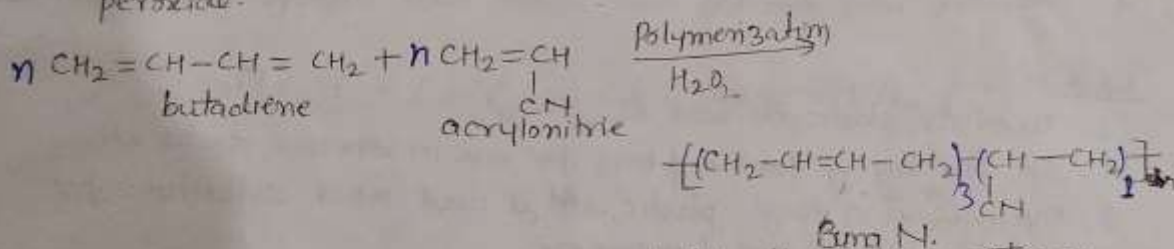 peroxide.
n CH₂ = CH – CH = CH₂ + n CH₂ = CH Polymerization
| H₂O₂
butadiene CN
acrylonitrie
-[(CH₂ – CH = CH – CH₂)₃ (CH — CH₂)₁]-
|
CN
Buna N.